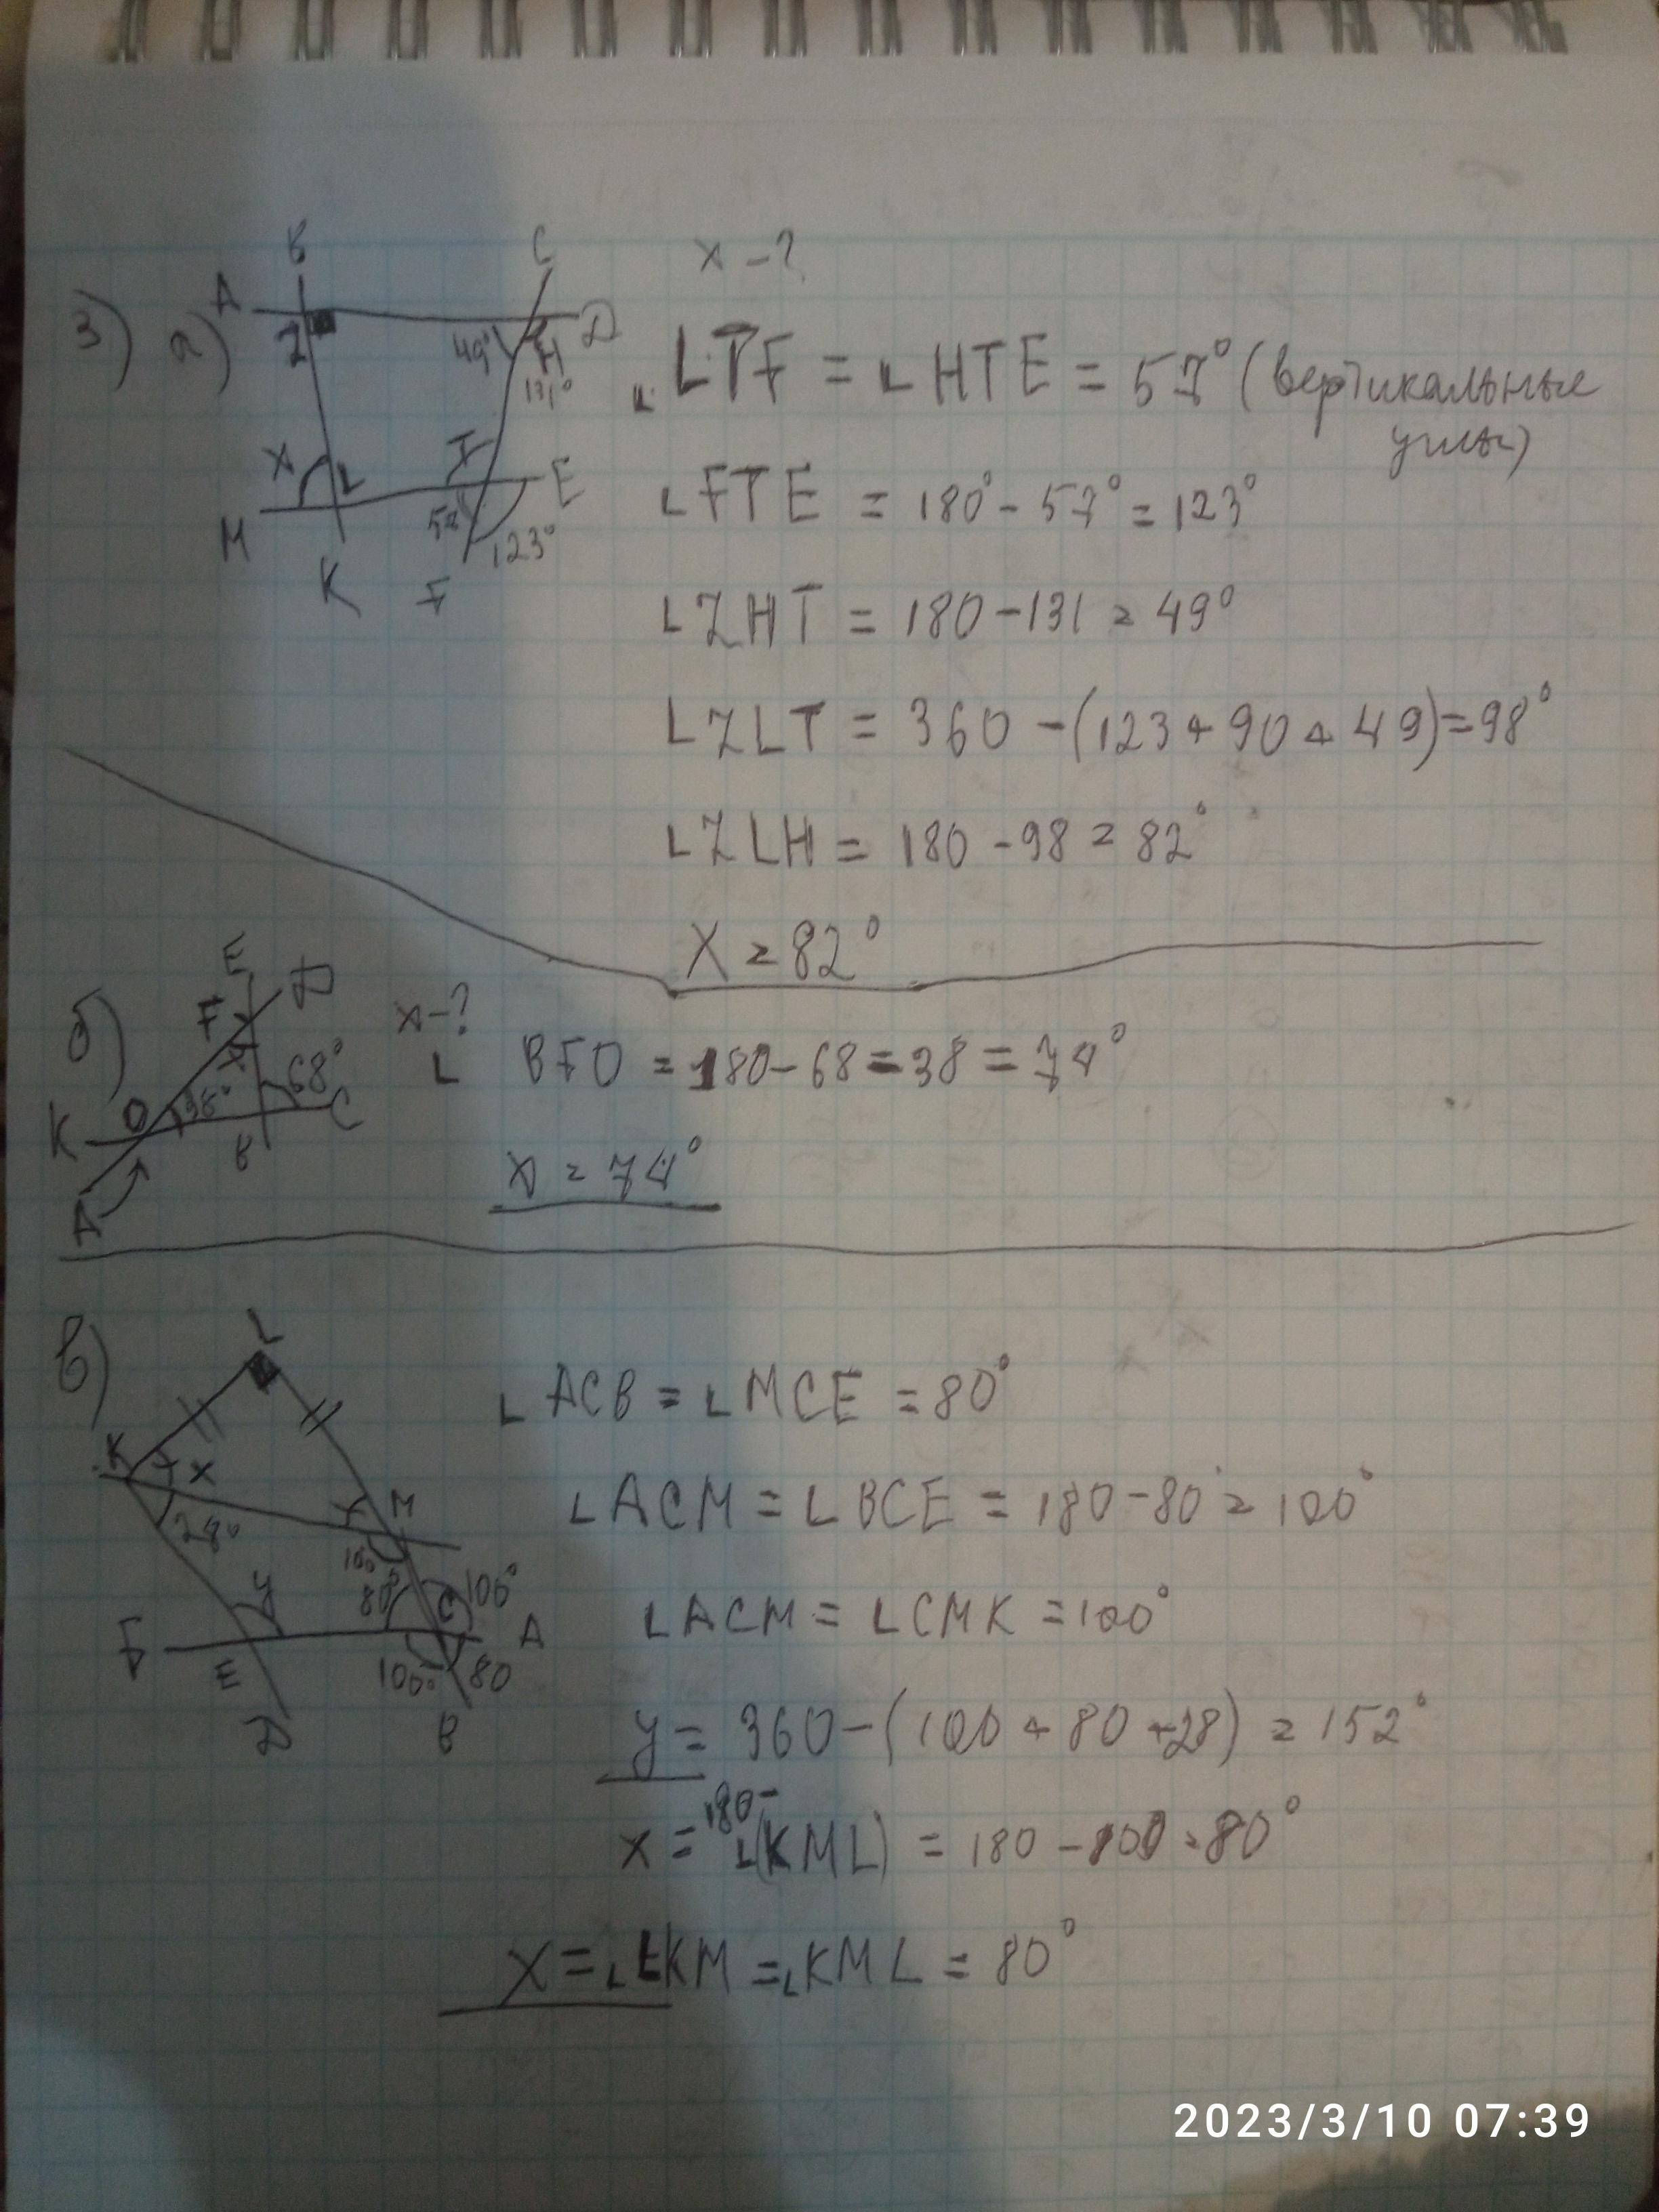 3) а)
B
C
A
D
Z
H
49°
131°
X
L
T
E
M
57°
123°
K
F
X - ?
∟LTF = ∟HTE = 57° (вертикальные
углы)
∟FTE = 180° - 57° = 123°
∟ZHT = 180 - 131 = 49°
∟ZLT = 360 - (123 + 90 + 49) = 98°
∟ZLH = 180 - 98 = 82°
X = 82°
б)
E
D
F
X
68°
38°
K
O
B
C
A
x - ?
∟BFO = 180 - 68 - 38 = 74°
x = 74°
в)
L
K
X
M
28°
100°
y
80°
C
100°
F
E
A
100°
80
D
B
∟ACB = ∟MCE = 80°
∟ACM = ∟BCE = 180 - 80 = 100°
∟ACM = ∟CMK = 100°
y = 360 - (100 + 80 + 28) = 152°
x = 180 - ∟(KML) = 180 - 100 = 80°
X = ∟LKM = ∟KML = 80°
2023/3/10 07:39